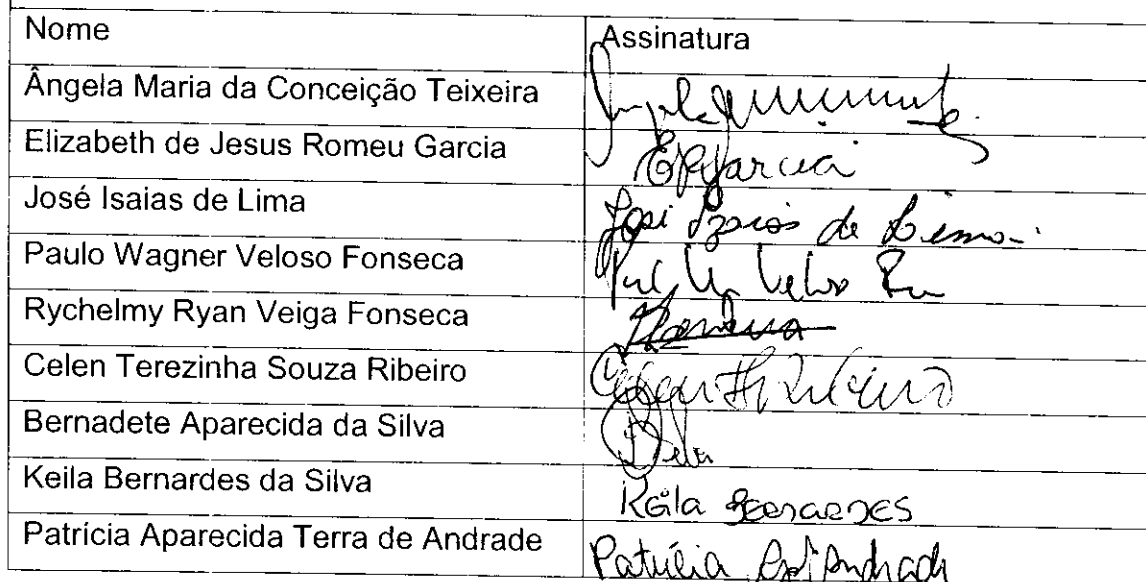 Nome Assinatura
Ângela Maria da Conceição Teixeira
Elizabeth de Jesus Romeu Garcia ERGarcia
José Isaias de Lima José Isaias de Lima
Paulo Wagner Veloso Fonseca
Rychelmy Ryan Veiga Fonseca
Celen Terezinha Souza Ribeiro
Bernadete Aparecida da Silva
Keila Bernardes da Silva Keila Bernardes
Patrícia Aparecida Terra de Andrade Patrícia Andrade